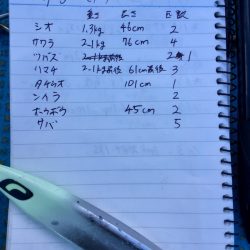 重さ 長さ 匹数
シオ 1.3kg 46cm 2
サワラ 2.1kg 76cm 4
ツバス 1
ハマチ 2.1kg前後 61cm前後 3
タチウオ 101cm 1
シイラ 2
ホウボウ 45cm 2
サバ 5